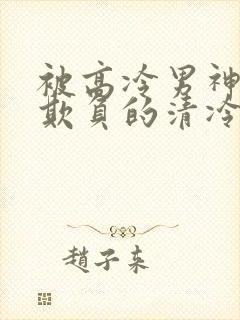 被高冷男神
欺负的清冷
趙子来